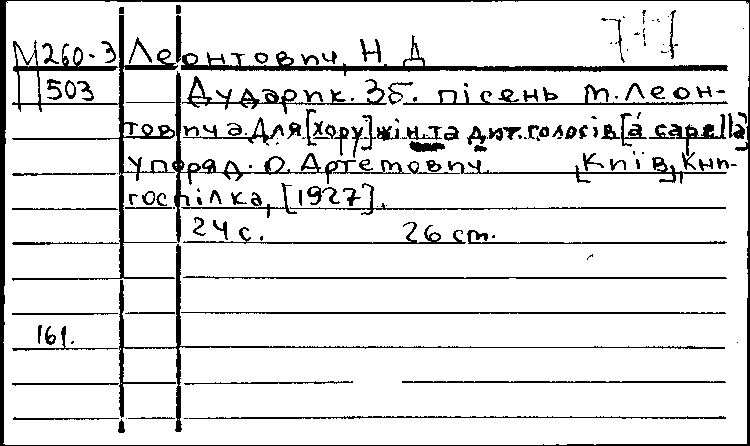 М260-3 Леонтович, Н. Д
П 503 Дударик. Зб. пісень М. Леон-
товича. Для [хору] жін. та дит. голосів [a capella]
упоряд. О. Артемович. [Київ], Кни-
госпілка, [1927].
24 с. 26 cm.
161.